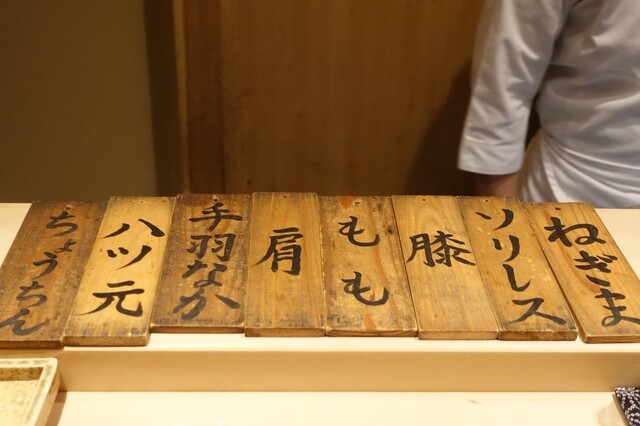 ねぎま
ソリレス
膝
もも
肩
手羽なか
八ツ元
ちょうちん